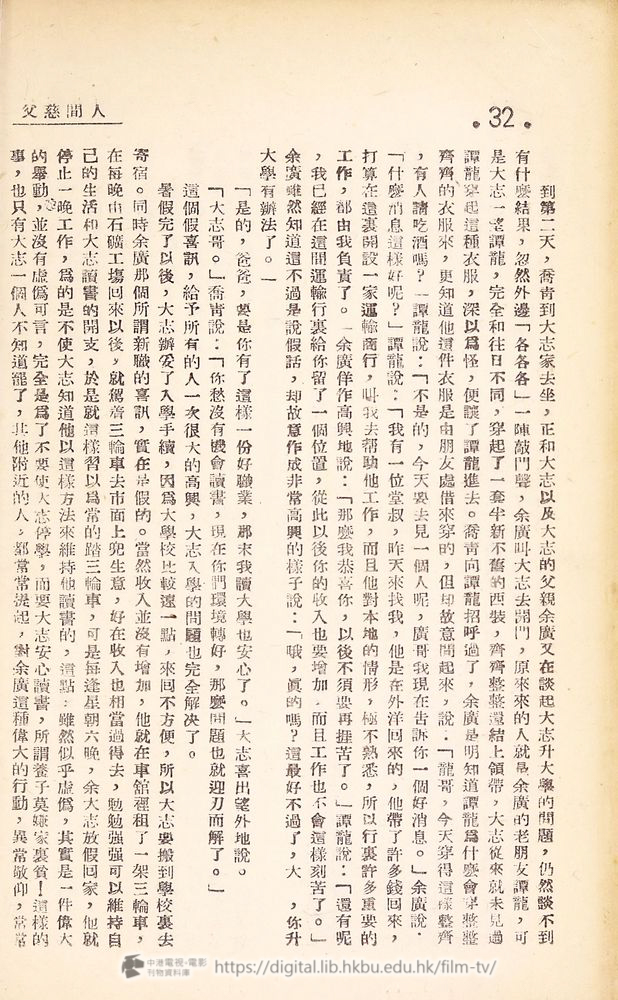 人間慈父
•32•
到第二天，喬青到大志家去坐，正和大志以及大志的父親余廣又在談起大志升大學的問題，仍然談不到
有什麼結果，忽然外邊「各各各」一陣敲門聲，余廣叫大志去開門，原來來的人就是余廣的老朋友譚龍，可
是大志一望譚龍，完全和往日不同，穿起了一套半新不舊的西裝，齊齊整整還結上領帶，大志從來就未見過
譚龍穿起這種衣服，深以爲怪，便讓了譚龍進去。喬青向譚龍招呼過了，余廣是明知道譚龍爲什麼會穿整整
齊齊的衣服來，更知道他這件衣服是由朋友處借來穿的，但却故意問起來，說：「龍哥，今天穿得這樣整齊
，有人請吃酒嗎？」譚龍說：「不是的，今天要去見一個人呢，廣哥我現在告訴你一個好消息。」余廣說：
「什麼消息這樣好呢？」譚龍說：「我有一位堂叔，昨天來找我，他是在外洋回來的，他帶了許多錢回來，
打算在這裏開設一家運輸商行，叫我去幫助他工作，而且他對本地的情形，極不熟悉，所以行裏許多重要的
工作，都由我負責了。」余廣佯作高興地說：「那麼我恭喜你，以後不須要再捱苦了。」譚龍說：「還有呢
，我已經在這間運輸行裏給你留了一個位置，從此以後你的收入也要增加，而且工作也不會這樣刻苦了。」
余廣雖然知道這不過是說假話，却故意作成非常高興的樣子說：「哦，眞的嗎？這最好不過了，大 ，你升
大學有辦法了。」
「是的，爸爸，要是你有了這樣一份好職業，那末我讀大學也安心了。」大志喜出望外地說。
「大志哥。」喬青說：「你愁沒有機會讀書，現在你們環境轉好，那麼問題也就迎刃而解了。」
這個假喜訊，給予所有的人一次很大的高興，大志入學的問題也完全解决了。
暑假完了以後，大志辦妥了入學手續，因爲大學校比較遠一點，來回不方便，所以大志要搬到學校裏去
寄宿。同時余廣那個所謂新職的喜訊，實在是假的。當然收入並沒有增加，他就在車舘裡租了一架三輪車，
在每晚由石礦工塲回來以後，就駕着三輪車去市面上兜生意，好在收入也相當過得去，勉勉强强可以維持自
己的生活和大志讀書的開支，於是就這樣習以爲常的踏三輪車，可是每逢星期六晚，余大志放假回家，他就
停止一晚工作，爲的是不使大志知道他以這樣方法來維持他讀書的，這點：雖然似乎虛僞，其實是一件偉大
的舉動，並沒有虛僞可言，完全是爲了不要使大志停學，而要大志安心讀書，所謂養子莫嫌家裏貧！這樣的
事，也只有大志一個人不知道罷了，其他附近的人，都常常談起，對余廣這種偉大的行動，異常敬仰，常常
中港電視・電影
刊物資料庫
https://digital.lib.hkbu.edu.hk/film-tv/